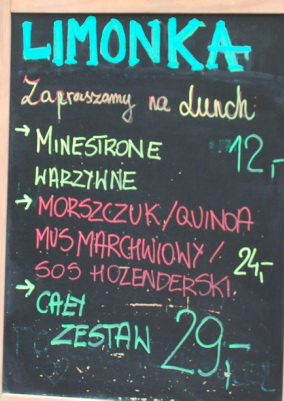 LIMONKA
Zapraszamy na Lunch
→ MINESTRONE 12,-
WARZYWNE
→ MORSZCZUK/QUINOA
MUS MARCHWIOWY/ 24,-
SOS HOZENDERSKI.
→ CAŁY
ZESTAW 29,-